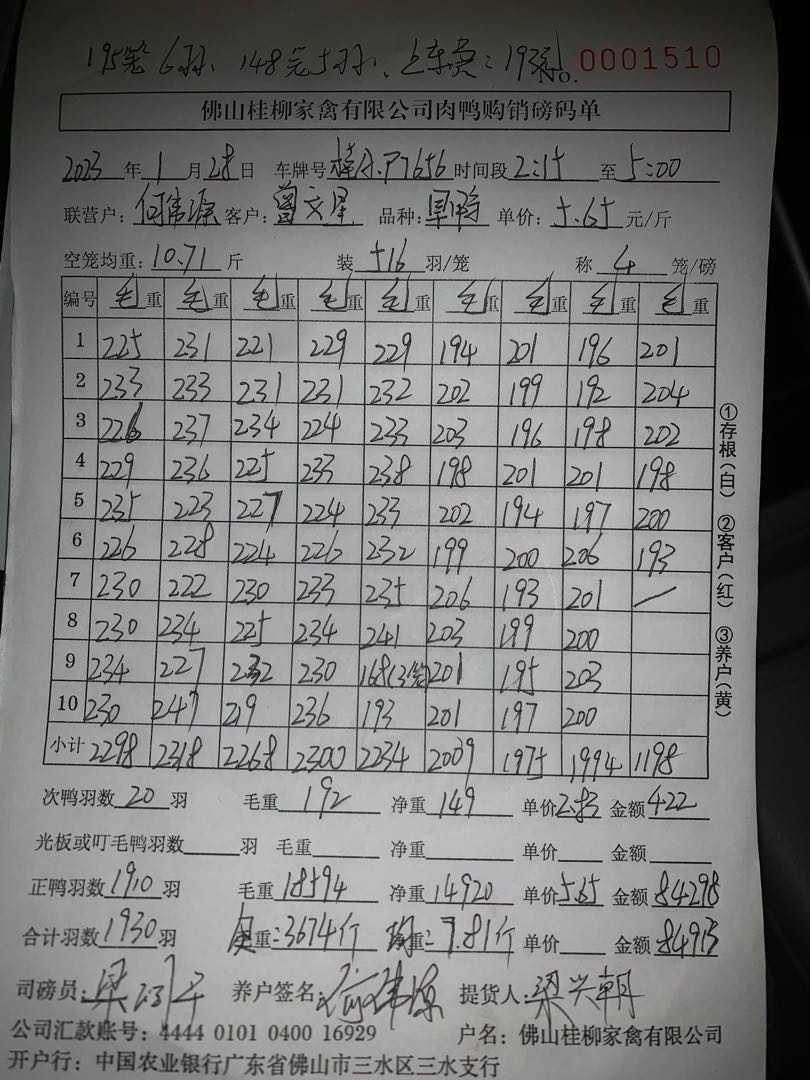 195笼6羽、148元5羽、上车费:193元 No.0001510
佛山桂柳家禽有限公司肉鸭购销磅码单
2023年1月28日 车牌号桂A.P7656时间段2:15至5:00
联营户:何伟源客户:曾文星 品种: 单价:5.65元/斤
空笼均重:10.71斤 装 516羽/笼 称 4 笼/磅
编号 毛重 毛重 毛重 毛重 毛重 毛重 毛重 毛重 毛重
1 225 231 221 229 229 194 201 196 201
2 233 233 231 231 232 202 199 192 204
3 226 237 234 224 233 203 196 198 202
4 229 236 225 233 238 198 201 201 198
5 235 223 227 224 233 202 194 197 200
6 226 228 224 226 232 199 200 206 193
7 230 222 230 233 235 206 193 201 —
8 230 234 225 234 241 203 199 200
9 234 227 232 230 168(3笼) 201 195 203
10 230 247 219 236 193 201 197 200
小计 2298 2318 2268 2300 2234 2009 1975 1994 1198
次鸭羽数20羽 毛重192 净重149 单价2.83 金额422
光板或叮毛鸭羽数 羽 毛重 净重 单价 金额
正鸭羽数1910羽 毛重18594 净重14920 单价5.65 金额84298
合计羽数1930羽 重:3674斤 均重:7.81斤 单价 金额84913
司磅员: 养户签名:何伟源 提货人:梁兴朝
公司汇款账号:4444 0101 0400 16929 户名:佛山桂柳家禽有限公司
开户行:中国农业银行广东省佛山市三水区三水支行
①存根(白) ②客户(红) ③养户(黄)